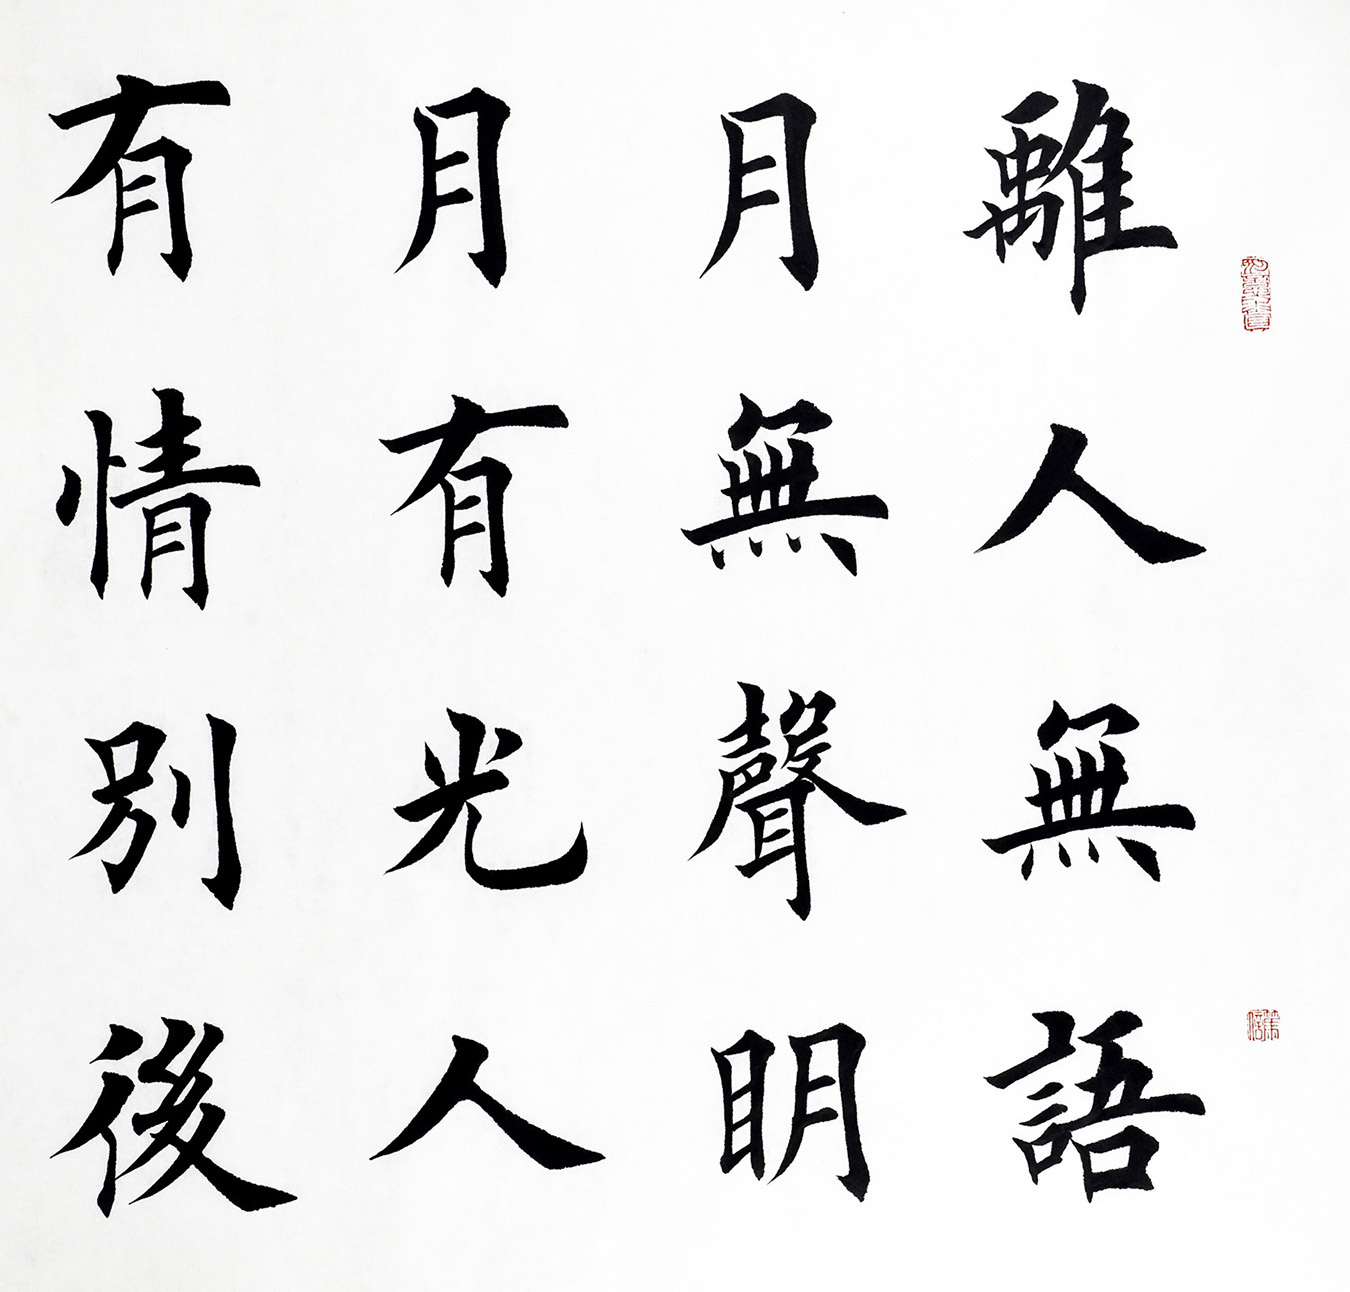 離人無語
月無聲明
月有光人
有情別後